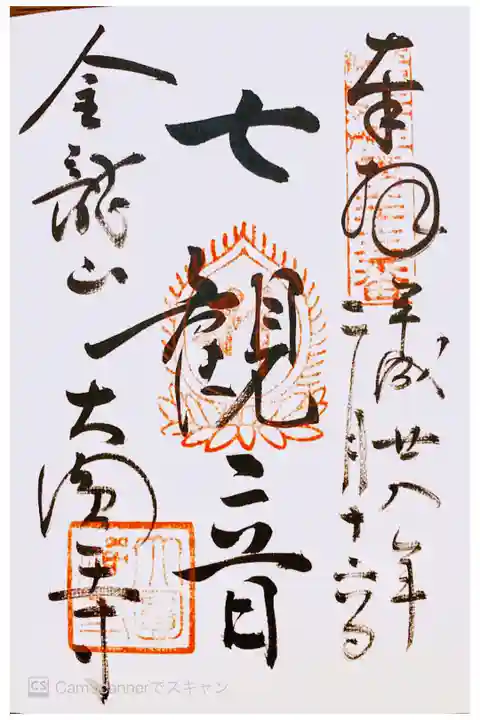 奉拝
平成廿八年
二月十六日
七観音
金龍山
大圓寺
CS CamScannerでスキャン